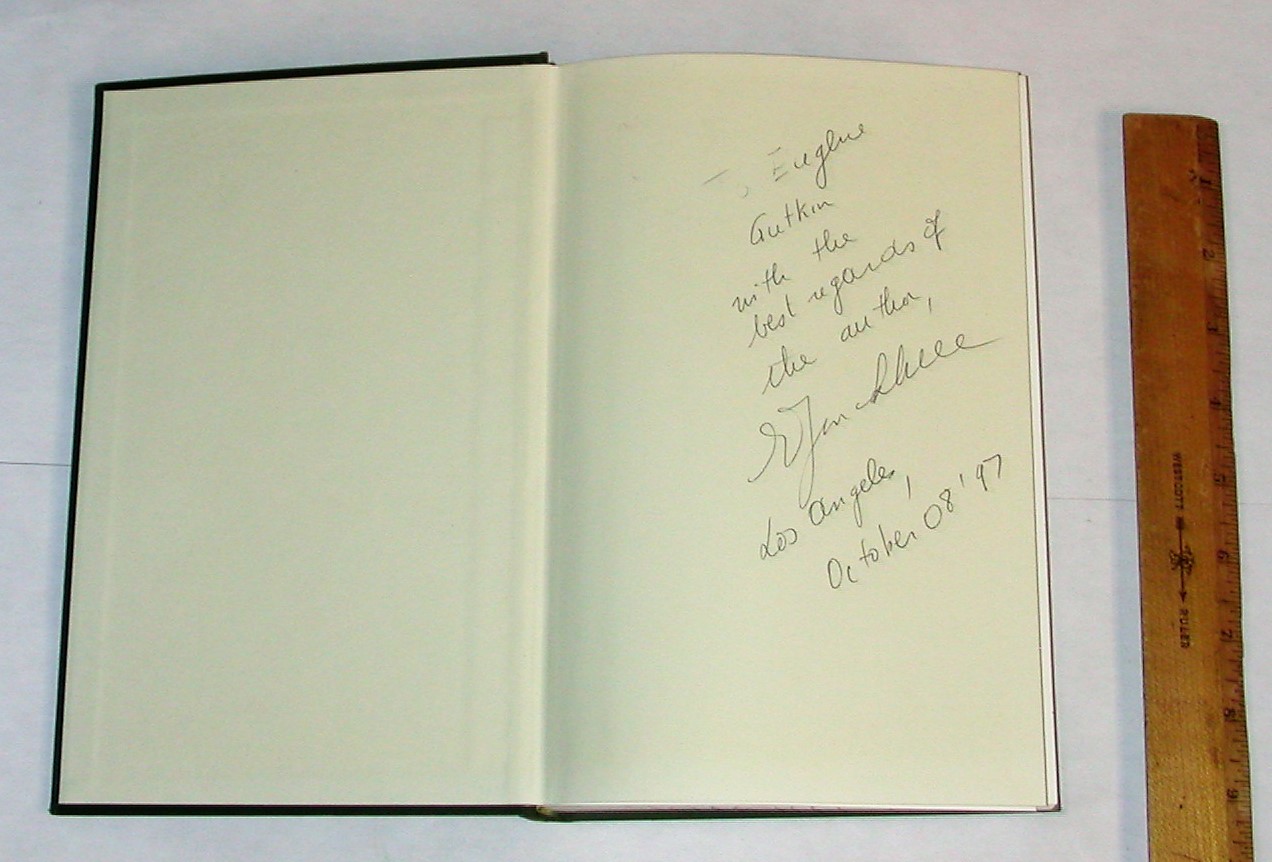 To Eugene
Gutkin
with the
best regards of
the author,
Los Angeles,
October 08 '97
WESTCOTT RULER
1
2
3
4
5
6
7
8
9